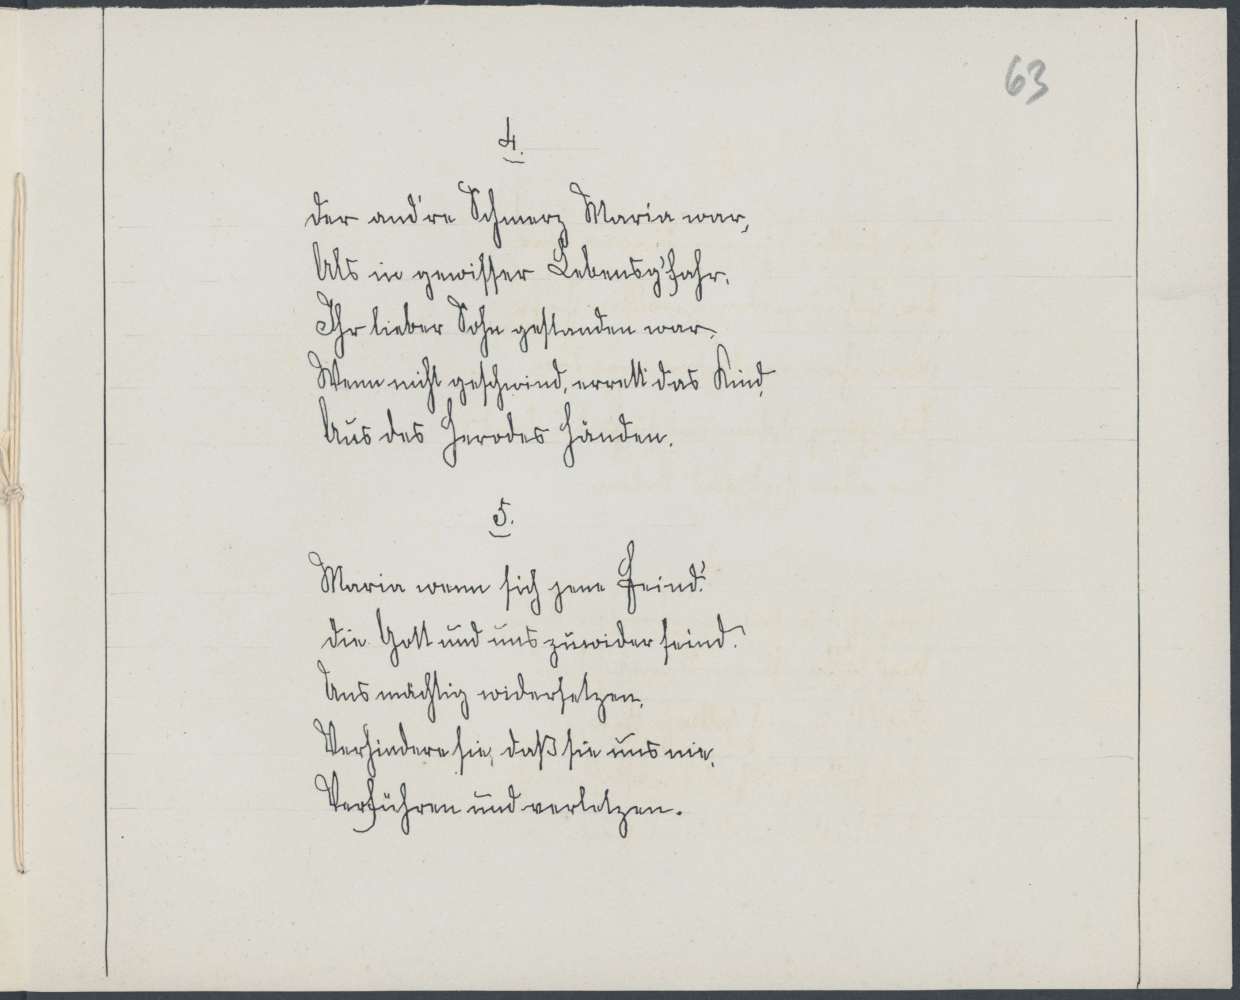 63
4.
der and're Schmerz Maria war,
Als in gewisser Lebensg'fahr.
Ihr lieber Sohn gestanden war.
Wenn nicht geschwind, errett das Kind,
Aus des Herodes Händen.
5.
Maria wenn sich jene Feind!
die Gott und uns zuwider seind!
Uns mächtig widersetzen,
Verhindere sie, daß sie uns nie,
Verführen und verletzen.